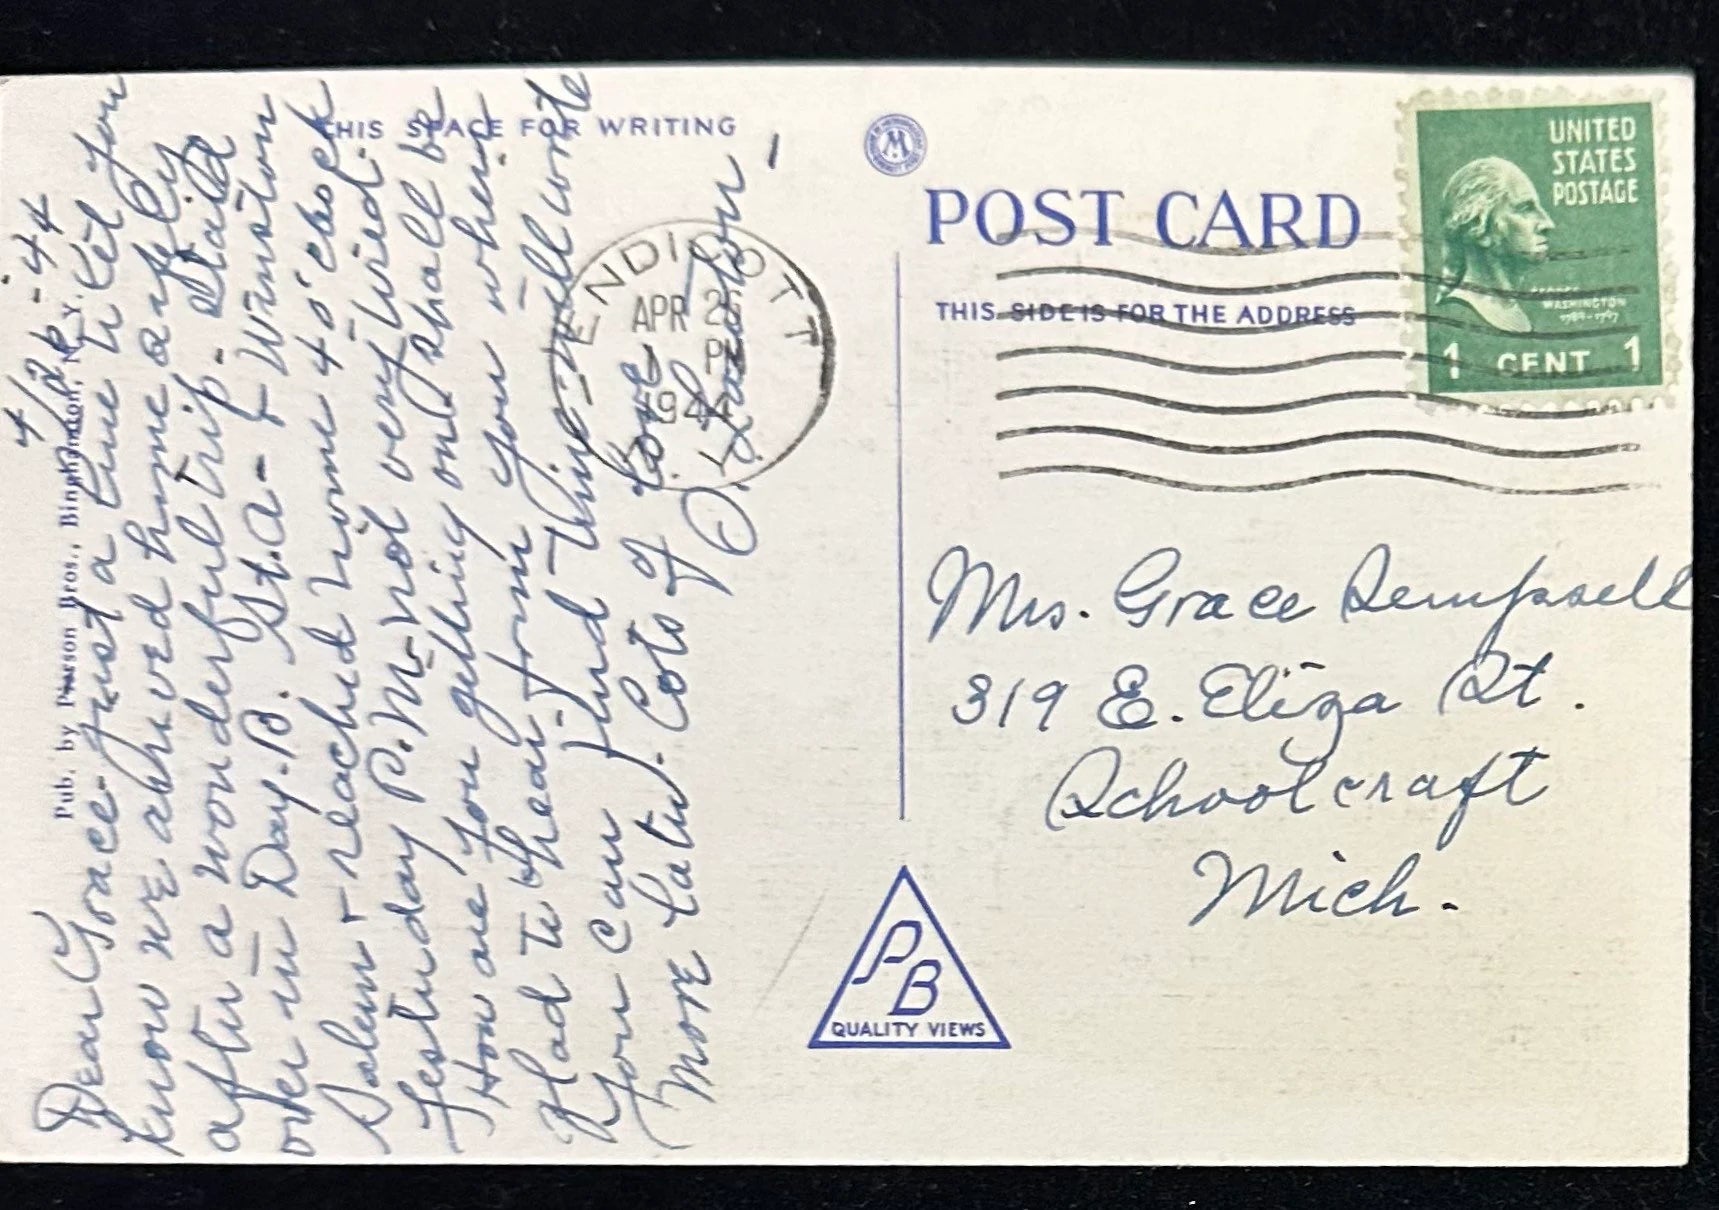 4/26-'44
Dear Grace- Just a line to let you
know we arrived home safely
after a wonderful trip. Staid
over in Day. B. St. A- & Winston
Salem & reached home 4 o'clock
Yesterday P.M- not very tired.
How are you getting on? Shall be
glad to hear from you when
you can find time- Will write
more later. Lots of love
O.
Pub. by Pierson Bros., Binghamton, N. Y.
THIS SPACE FOR WRITING
ENDICOTT
APR 26
PM
1944
N.Y.
M
POST CARD
THIS SIDE IS FOR THE ADDRESS
UNITED
STATES
POSTAGE
GEORGE
WASHINGTON
1789-1797
1 CENT 1
Mrs. Grace Dempsell
319 E. Eliza St.
Schoolcraft
Mich.
PB
QUALITY VIEWS